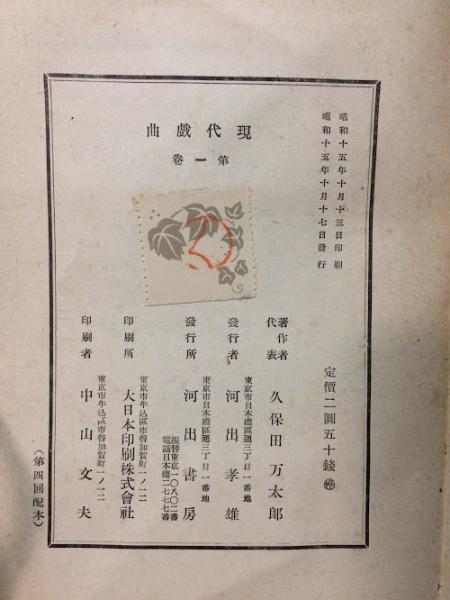 現代戲曲
第一卷
昭和十五年十月十三日印刷
昭和十五年十月十七日發行
定價二圓五十錢
著作者代表 久保田万太郎
東京市日本橋區通三丁目一番地
發行者 河出孝雄
東京市日本橋區通三丁目一番地
發行所 河出書房
振替東京一〇八〇二番
電話日本橋二七七七番
東京市牛込區市谷加賀町一ノ一二
印刷所 大日本印刷株式會社
東京市牛込區市谷加賀町一ノ一二
印刷者 中山文夫
（第四回配本）